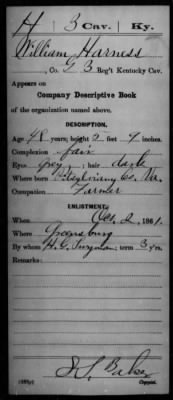 H 3 Cav. Ky.
William Harness
, Co. G 3 Reg't Kentucky Cav.
Appears on
Company Descriptive Book
of the organization named above.
DESCRIPTION.
Age 48 years; height 5 feet 9 inches.
Complexion Fair
Eyes Grey; hair dark
Where born Co, Va.
Occupation Farmer
ENLISTMENT.
When Oct. 2, 1861.
Where Greensburg
By whom H. C. ; term 3 y'rs.
Remarks:
Copyist.